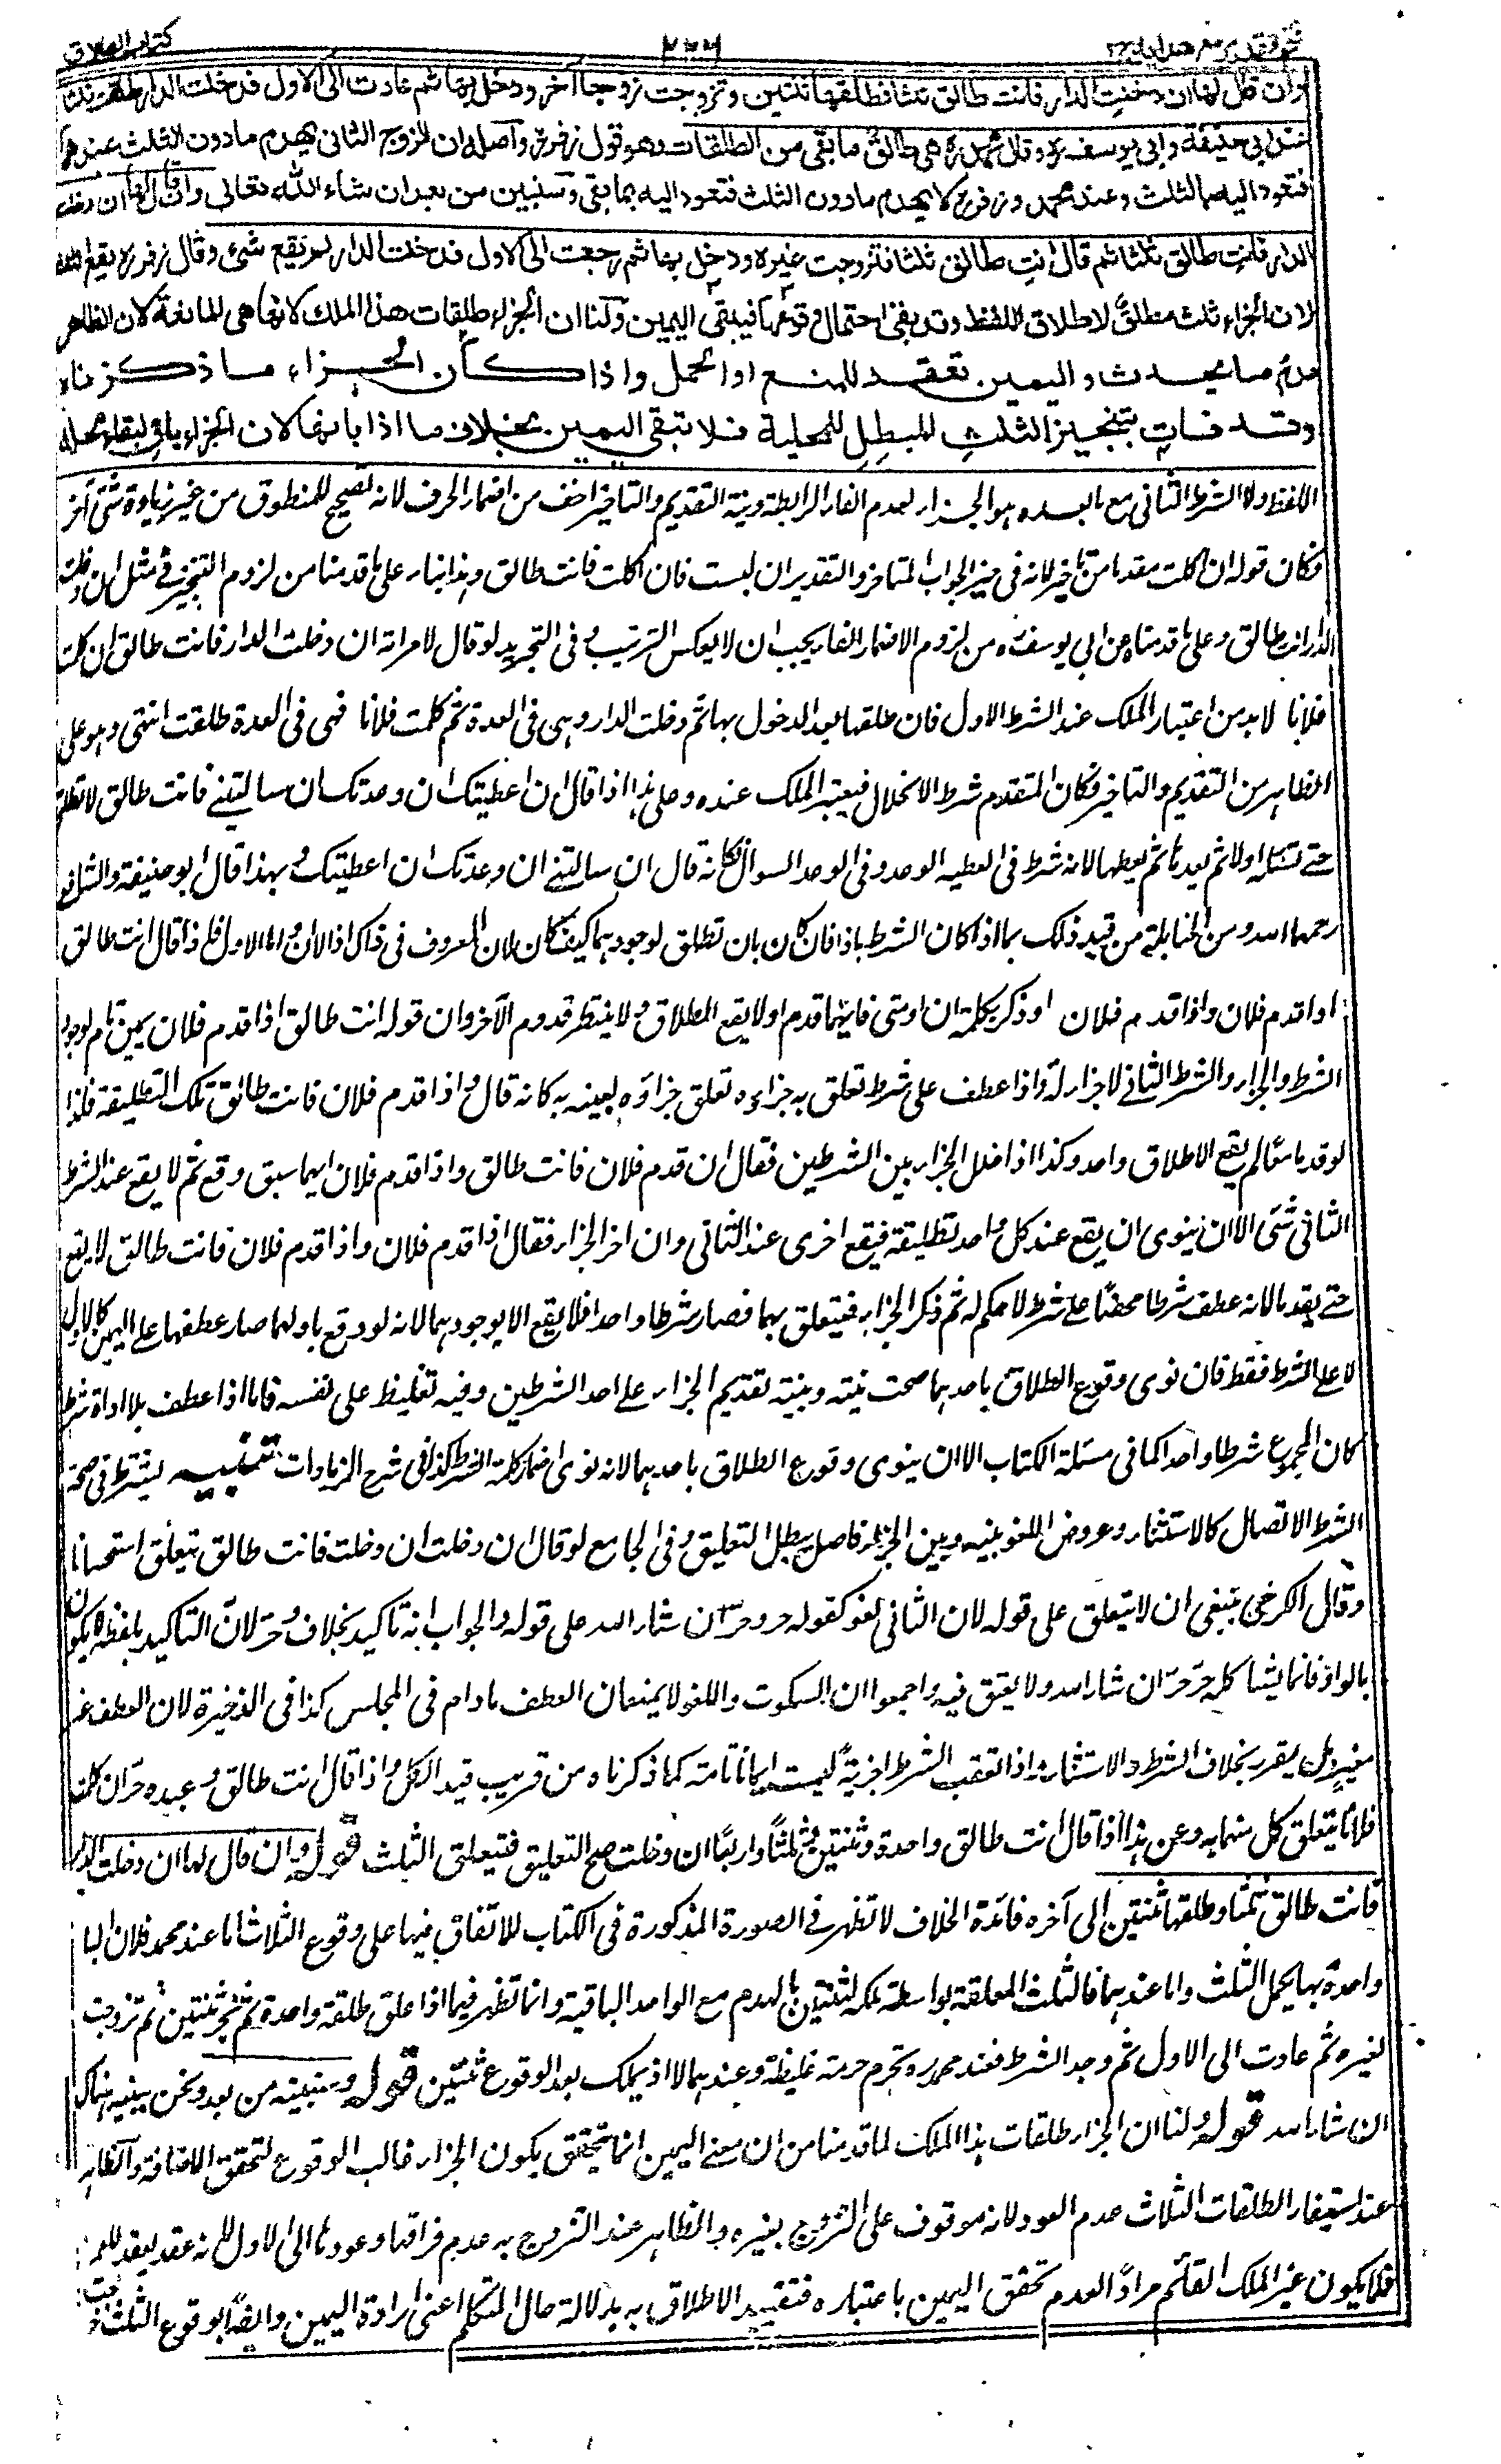 فتح القدير مع هداية ٢
كتاب الطلاق
وان قال لها ان دخلت الدار فانت طالق ثلثا فطلقها ثنتين وتزوجت زوجا آخر ودخل بها ثم عادت الى الاول فدخلت الدار طلقت ثلثا
عند ابي حنيفة وابي يوسف ره وقال محمد ره هي طالق ما بقي من الطلقات وهو قول زفر ره واصله ان الزوج الثاني يهدم ما دون الثلث عندهما
فتعود اليه بالثلث وعند محمد وزفر ره لا يهدم ما دون الثلث فتعود اليه بما بقي وسنبين من بعد ان شاء الله تعالى وان قال لها ان دخلت
الدار فانت طالق ثلثا ثم قال انت طالق ثلثا فتزوجت غيره ودخل بها ثم رجعت الى الاول فدخلت الدار لم يقع شئ وقال زفر ره يقع الثلث
لان الجزاء ثلث مطلق لاطلاق اللفظ وقد بقي احتمال وقوعها فيبقى اليمين ولنا ان الجزاء طلقات هذا الملك لانها هي المانعة لان الظاهر
عدم ما يحدث واليمين تعقد للمنع او الحمل واذا كان الجزاء ما ذكرناه
وقد فات بتنجيز الثلث المبطل للمحلية فلا تبقى اليمين بخلاف ما اذا بانها لان الجزاء باق لبقاء محله
اللفظ ولا الشرط الثاني مع ما بعده هو الجزاء لعدم الفاء الرابطة ونية التقديم والتاخير اخف من اضمار الحرف لانه تصحيح للمنطوق من غير زيادة شئ آخر
فكان قوله ان اكلت مقدما من تاخير لانه في حيز الجواب المتاخر والتقدير ان لبست فان اكلت فانت طالق وهذا بناء على ما قدمنا من لزوم التنجيز في مثل ان دخلت
الدار انت طالق وعلى ما قدمناه عن ابي يوسف ره من لزوم الاضمار الفاء يجب ان لا يعكس الترتيب وفي التجريد لو قال لامراته ان دخلت الدار فانت طالق ان كلمت
فلانا لا بد من اعتبار الملك عند الشرط الاول فان طلقها بعد الدخول بها ثم دخلت الدار وهي في العدة ثم كلمت فلانا فهي في العدة طلقت انتهى وهو على
الظاهر من التقديم والتاخير فكان المتقدم شرط الانحلال فيعتبر الملك عنده وعلى هذا اذا قال ان اعطيتك ان وعدتك ان سالتني فانت طالق لا تطلق
حتى تسئله اولا ثم يعدها ثم يعطيها لانه شرط في العطية الوعد وفي الوعد السوال فكانه قال ان سالتني ان وعدتك ان اعطيتك وبهذا قال ابو حنيفة والشافعي
رحمهما الله ومن الحنابلة من قيد ذلك بما اذا كان الشرط باذا فان كان بان تطلق لوجودهما كيف كان لان المعروف في ذلك اذا لا ان واما الاول فاذا قال انت طالق
اذا قدم فلان واذا قدم فلان او ذكر بكلمة ان او متى فايهما قدم اولا يقع الطلاق ولا ينتظر قدوم الآخر وان قوله انت طالق اذا قدم فلان يمين تام لوجود
الشرط والجزاء والشرط الثاني لا جزاء له واذا عطف على شرط تعلق به جزاءه تعلق جزاؤه بعينه به كانه قال واذا قدم فلان فانت طالق تلك التطليقة فلهذا
لو قدما معا لم يقع الا طلاق واحد وكذا اذا خلل الجزاء بين الشرطين فقال ان قدم فلان فانت طالق واذا قدم فلان ايهما سبق وقع ثم لا يقع عند الشرط
الثاني شئ الا ان ينوي ان يقع عند كل واحد تطليقة فيقع اخرى عند الثاني وان اخر الجزاء فقال اذا قدم فلان واذا قدم فلان فانت طالق لا يقع
حتى يقدما لانه عطف شرطا محضا على شرط لا حكم له ثم ذكر الجزاء فيتعلق بهما فصار شرطا واحدا فلا يقع الا بوجودهما لانه لو وقع باولهما صار عطفها على اليمين كالاول
لا على الشرط فقط فان نوى وقوع الطلاق باحدهما صحت نيته وبنيته تقديم الجزاء على احد الشرطين وفيه تغليظ على نفسه فاما اذا عطف بلا اداة شرط
كان المجموع شرطا واحدا كما في مسئلة الكتاب الا ان ينوي وقوع الطلاق باحدهما لانه نوى اضمار كلمة الشرط كذا في شرح الزيادات تنبيه يشترط في صحة
الشرط الاتصال كالاستثناء وعروض اللغو بينه وبين الجزاء فاصل يبطل التعليق وفي الجامع لو قال ان دخلت ان دخلت فانت طالق يتعلق استحسانا
وقال الكرخي ينبغي ان لا يتعلق على قوله لان الثاني لغو كقوله حر وحر ان شاء الله على قوله والجواب انه تاكيد بخلاف وحر لان التاكيد بلفظه لا يكون
بالواو فانما يشبه كله حر حر ان شاء الله ولا يعتق فيه واجمعوا ان السكوت واللغو لا يمنعان العطف ما دام في المجلس كذا في الذخيرة لان العطف غير
مغير بل يقرر بخلاف الشرط والاستثناء واذا تعقب الشرط اجزية ليست ايمانا تامة كما ذكرناه من قريب قيد الكل واذا قال انت طالق وعبده حر ان كلمت
فلانا يتعلق كل منهما به وعن هذا اذا قال انت طالق واحدة وثنتين وثلثا واربعا ان دخلت صح التعليق فتيعلق الثلث قوله وان قال لها ان دخلت الدار
فانت طالق ثلثا وطلقها ثنتين الى آخره فائدة الخلاف لا تظهر في الصورة المذكورة في الكتاب للاتفاق فيها على وقوع الثلاث اما عند محمد فلان لها
واحدة بها يكمل الثلث واما عندهما فالثلث المعلقة بواسطة ملكه لثنتين بالهدم مع الواحد الباقية وانما تظهر فيما اذا علق طلقة واحدة ثم نجز ثنتين ثم تزوجت
لغيره ثم عادت الى الاول ثم وجد الشرط فعند محمد ره تحرم حرمة غليظة وعندهما لا اذ يملك بعد الوقوع ثنتين قوله وسنبينه من بعد ونحن نبينه هناك
ان شاء الله قوله ولنا ان الجزاء طلقات هذا الملك لما قدمنا من ان معنى اليمين انما يتحقق بكون الجزاء غالب الوقوع لتحقق الاخافة والظاهر
عند استيفاء الطلقات الثلاث عدم العود لانه موقوف على التزوج بغيره والظاهر عند التزوج به عدم فراقها وعودها الى الاول لانه عقد يعقد للعمر
فلا يكون غير الملك القائم مرادا لعدم تحقق اليمين باعتباره فتقيد الاطلاق به بدلالة حال المتكلم اعني ارادة اليمين وايضا بوقوع الثلث خرجت